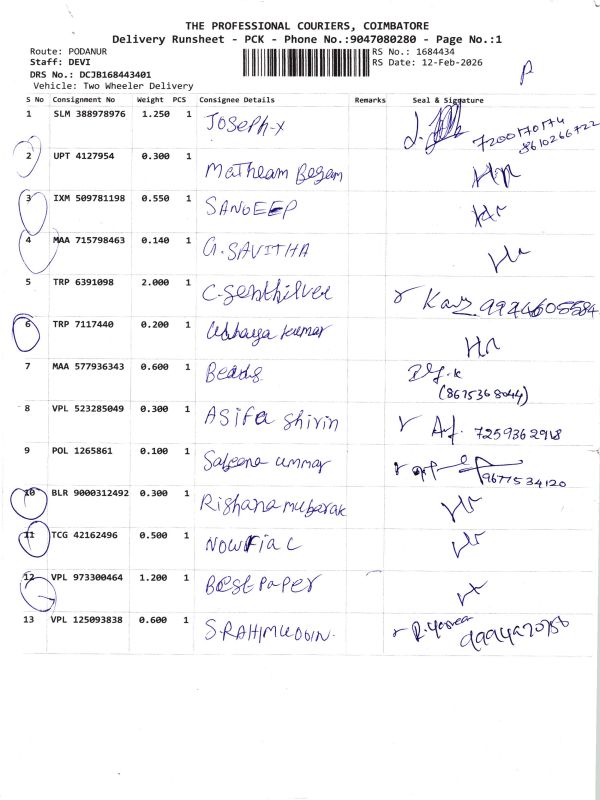 THE PROFESSIONAL COURIERS, COIMBATORE
Delivery Runsheet - PCK - Phone No.:9047080280 - Page No.:1
Route: PODANUR RS No.: 1684434
Staff: DEVI RS Date: 12-Feb-2026
DRS No.: DCJB168443401
Vehicle: Two Wheeler Delivery
P
S No Consignment No Weight PCS Consignee Details Remarks Seal & Signature
1 SLM 388978976 1.250 1 Joseph-x 7200170174
8610266722
2 UPT 4127954 0.300 1 Matheam Begam
3 IXM 509781198 0.550 1 SANDEEP
4 MAA 715798463 0.140 1 G.SAVITHA
5 TRP 6391098 2.000 1 C.Senthilver 9974605584
6 TRP 7117440 0.200 1 Udhaya kumar
7 MAA 577936343 0.600 1 Beads
(8675368044)
8 VPL 523285049 0.300 1 Asifa Shirin 7259362918
9 POL 1265861 0.100 1 Safeena ummar 9677534120
10 BLR 9000312492 0.300 1 Rishana mubarak
11 TCG 42162496 0.500 1 Nowfia C
12 VPL 973300464 1.200 1 Best Paper
13 VPL 125093838 0.600 1 S.RAHIMUDDIN.